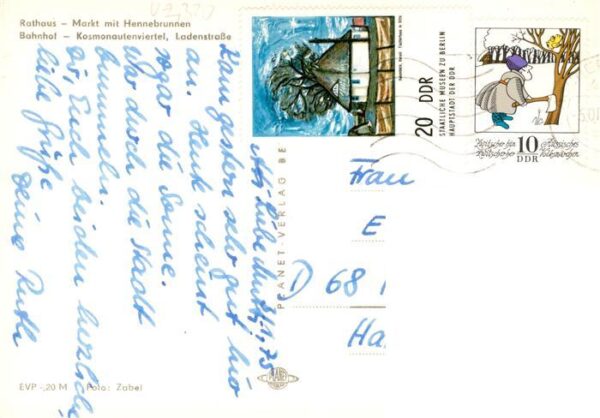 Rathaus — Markt mit Hennebrunnen
Bahnhof — Kosmonautenviertel, Ladenstraße
20 DDR
STAATLICHE MUSEEN ZU BERLIN
HAUPTSTADT DER DDR
10
DDR
PLANET-VERLAG BE
Meine liebe Mutti, 75
kam gestern sehr gut hier
an. Heut scheint
sogar die Sonne.
durch die Stadt
bummeln.
Dir, Euch beiden herzliche
liebe Grüße
Deine Ruth
Frau
E
D 68
Ha
PLANET
EVP -,20 M Foto: Zabel